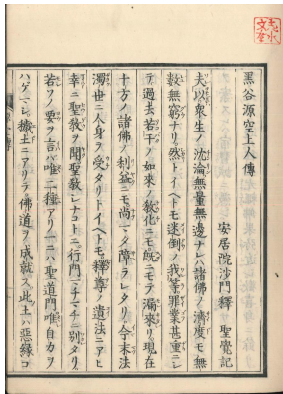 黒谷源空上人傳
安居院沙門釋 聖覺記
夫以衆生ノ沈淪無量無邊ナレハ諸佛ノ濟度モ無
數無窮ナリ然トイヘトモ迷倒ノ我等罪業甚重ニシ
テ過去若干ノ如來ノ敎化ニモ既ニモテ漏來リ現在
十方ノ諸佛ノ利益ニモ尚マタ障ラレタリ今末法
濁世ニ人身ヲ受タリトイヘトモ釋尊ノ遺法ニアヒ
幸ニ聖敎ヲ聞聖敎ヒレナコトニ行門マチマチニ別タリ
若ソノ要ヲ言ハ唯二種アリ一ニハ聖道門唯自力ヲ
ハゲマシ穢土ニアリテ佛道ヲ成就ス此土ハ惡縁コ